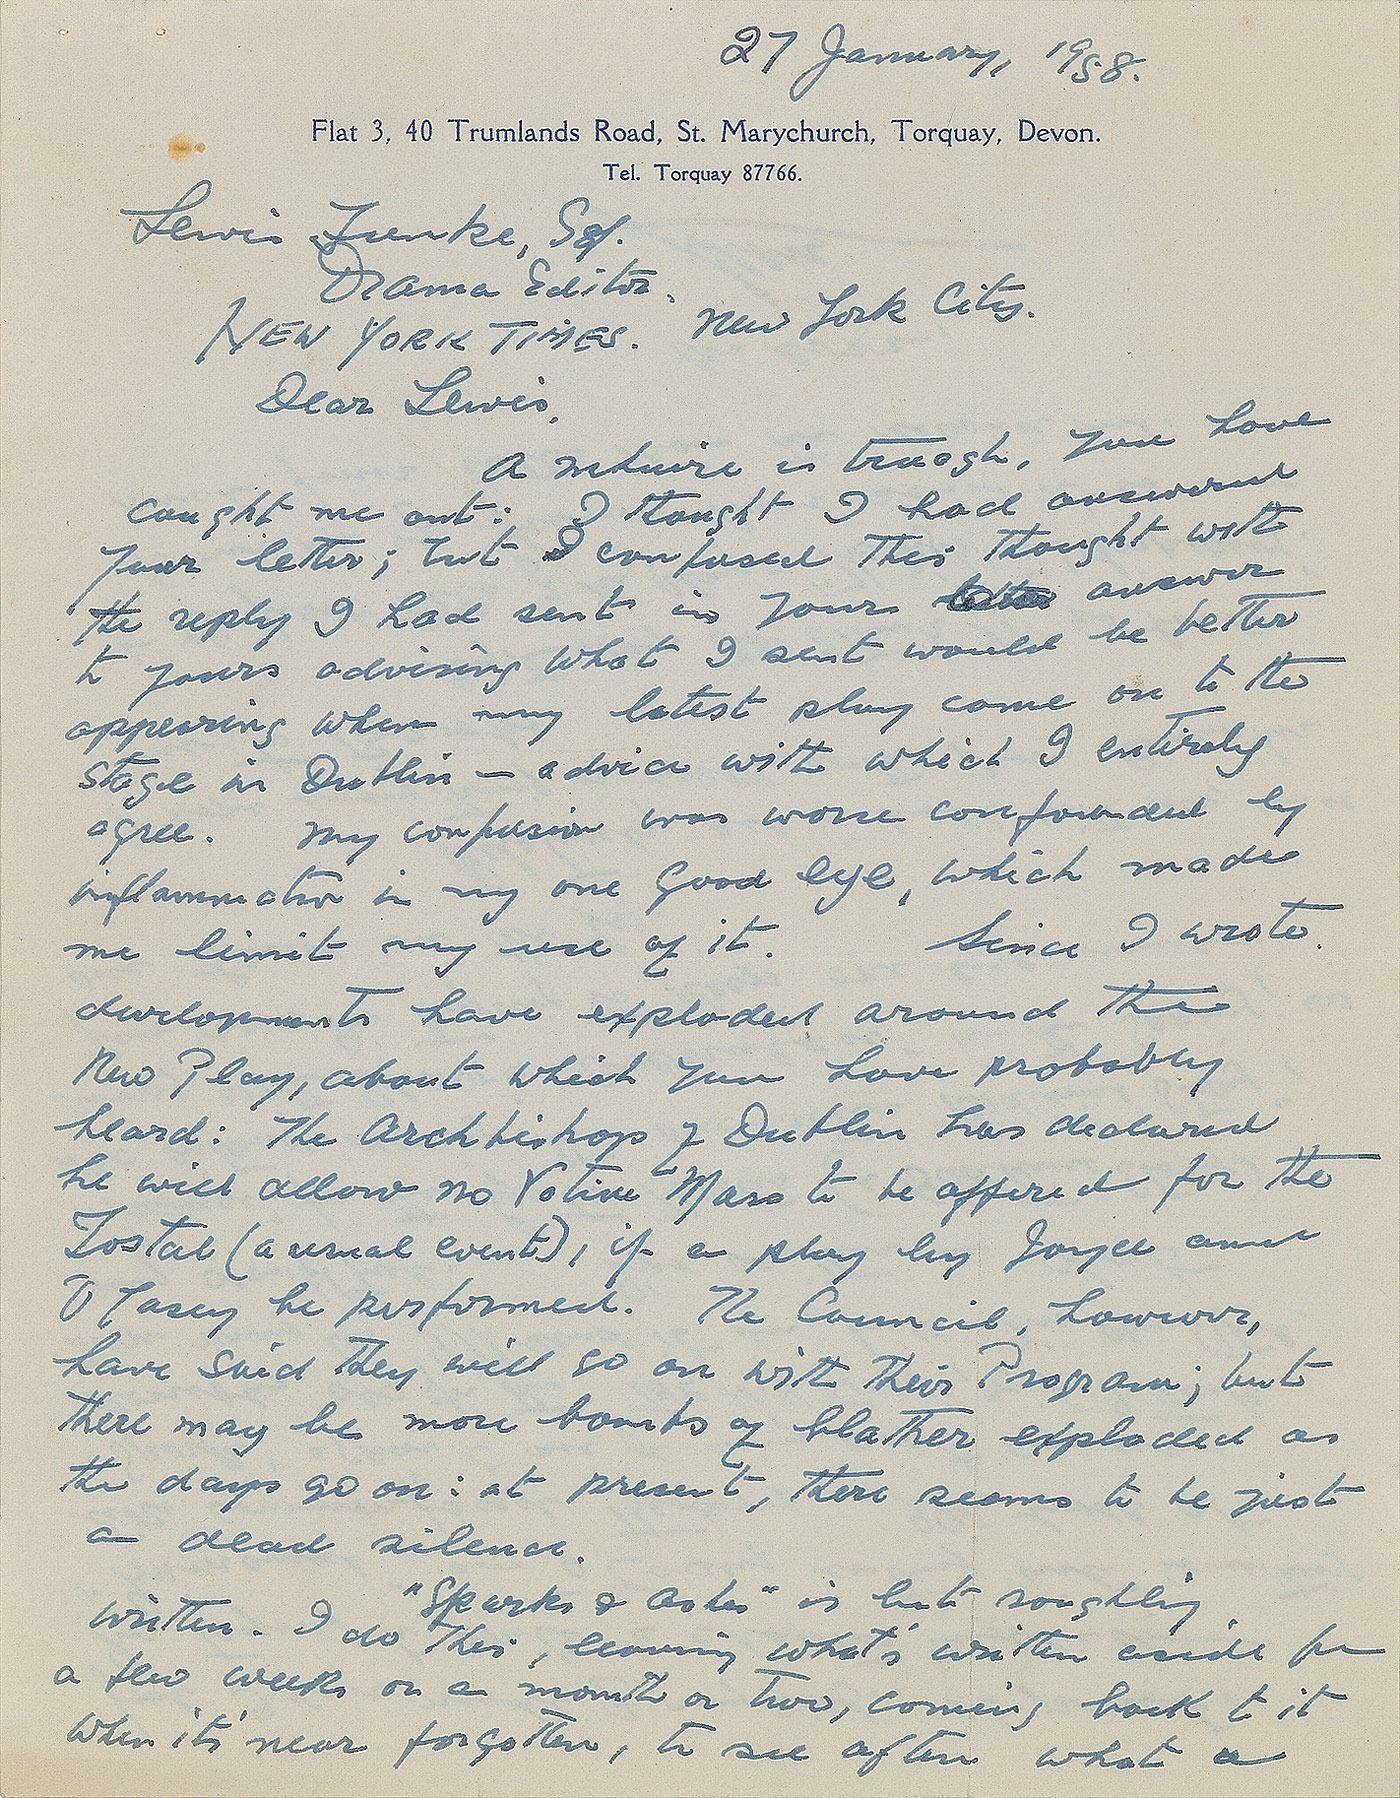 27 January, 1958.
Flat 3, 40 Trumlands Road, St. Marychurch, Torquay, Devon.
Tel. Torquay 87766.
Lewis Funke, Esq.
Drama Editor,
NEW YORK TIMES. New York City.
Dear Lewis,
A is truagh, you have
caught me out: I thought I had answered
your letter; but I confused this thought with
the reply I had sent in your answer
to yours advising what I sent would be better
appearing when my latest play came on to the
stage in Dublin — advice with which I entirely
agree. My confusion was worse confounded by
inflammation in my one good eye, which made
me limit my use of it. Since I wrote.
developments have exploded around the
New Play, about which you have probably
heard: The Archbishop of Dublin has declared
he will allow no Votive Mass to be offered for the
Tostal (a annual event), if a play by Joyce and
O'Casey be performed. The Council, however,
have said they will go on with their Program; but
there may be more bombs of blather exploded as
the days go on: at present, there seems to be just
a dead silence.
"Sparks & Ashes" is but roughly
written. I do this, leaving what's written aside for
a few weeks or a month or two, coming back to it
when it's near forgotten, to see often what a